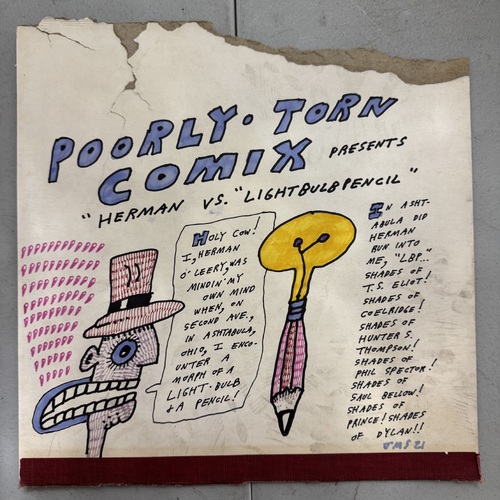 POORLY-TORN
COMIX PRESENTS
"HERMAN VS. "LIGHTBULBPENCIL"
HOLY COW!
I, HERMAN
O'LEERY, WAS
MINDIN' MY
OWN MIND
WHEN, ON
SECOND AVE.,
IN ASHTABULA,
OHIO, I ENCO-
UNTER A
MORPH OF A
LIGHT-BULB
& A PENCIL!
IN ASHT-
ABULA DID
HERMAN
RUN INTO
ME, "LBP..."
SHADES OF
T.S. ELIOT!
SHADES OF
COELRIDGE!
SHADES OF
HUNTER S.
THOMPSON!
SHADES OF
PHIL SPECTOR!
SHADES OF
SAUL BELLOW!
SHADES OF
PRINCE! SHADES
OF DYLAN!!
JMS 21